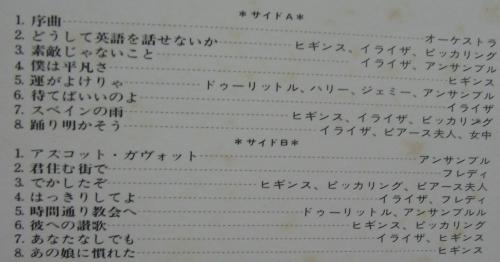 ＊サイドA＊
1. 序曲 オーケストラ
2. どうして英語を話せないか ヒギンス、イライザ、ピッカリング
3. 素敵じゃないこと イライザ、アンサンブル
4. 僕は平凡さ ヒギンス
5. 運がよけりゃ ドゥーリットル、ハリー、ジェミー、アンサンブル
6. 待てばいいのよ イライザ
7. スペインの雨 ヒギンス、イライザ、ピッカリング
8. 踊り明かそう イライザ、ピアース夫人、女中
＊サイドB＊
1. アスコット・ガヴォット アンサンブル
2. 君住む街で フレディ
3. でかしたぞ ヒギンス、ピッカリング、ピアース夫人
4. はっきりしてよ イライザ、フレディ
5. 時間通り教会へ ドゥーリットル、アンサンブルル
6. 彼への讃歌 ヒギンス、ピッカリング
7. あなたなしでも イライザ、ヒギンス
8. あの娘に慣れた ヒギンス